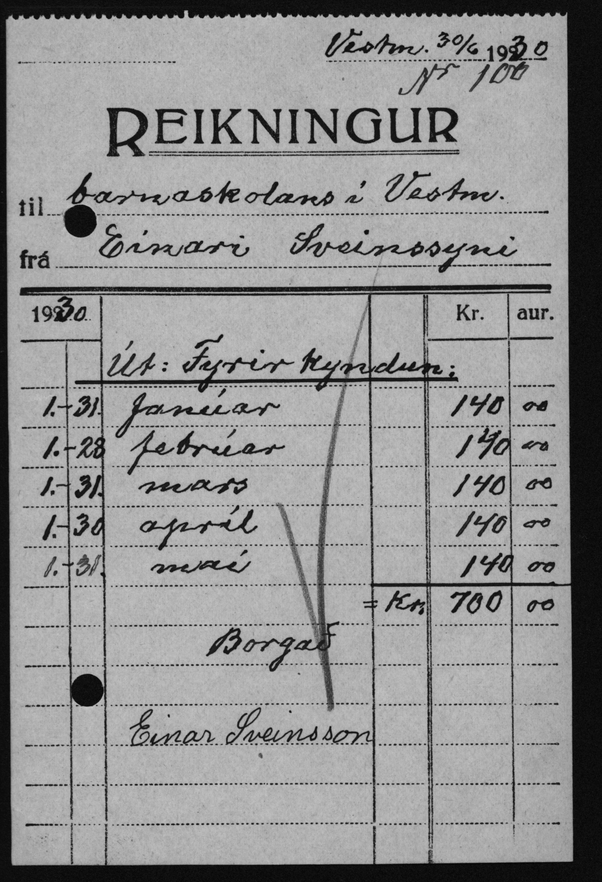 Vestm. 30/6 1930
Nr 100
REIKNINGUR
til barnaskolans í Vestm.
frá Einari Sveinssyni
1930. Kr. aur.
Út: Fyrir kyndun:
1.-31. janúar 140 00
1.-28 febrúar 140 00
1.-31. mars 140 00
1.-30 apríl 140 00
1.-31. maí 140 00
= Kr. 700 00
Borgað
Einar Sveinsson